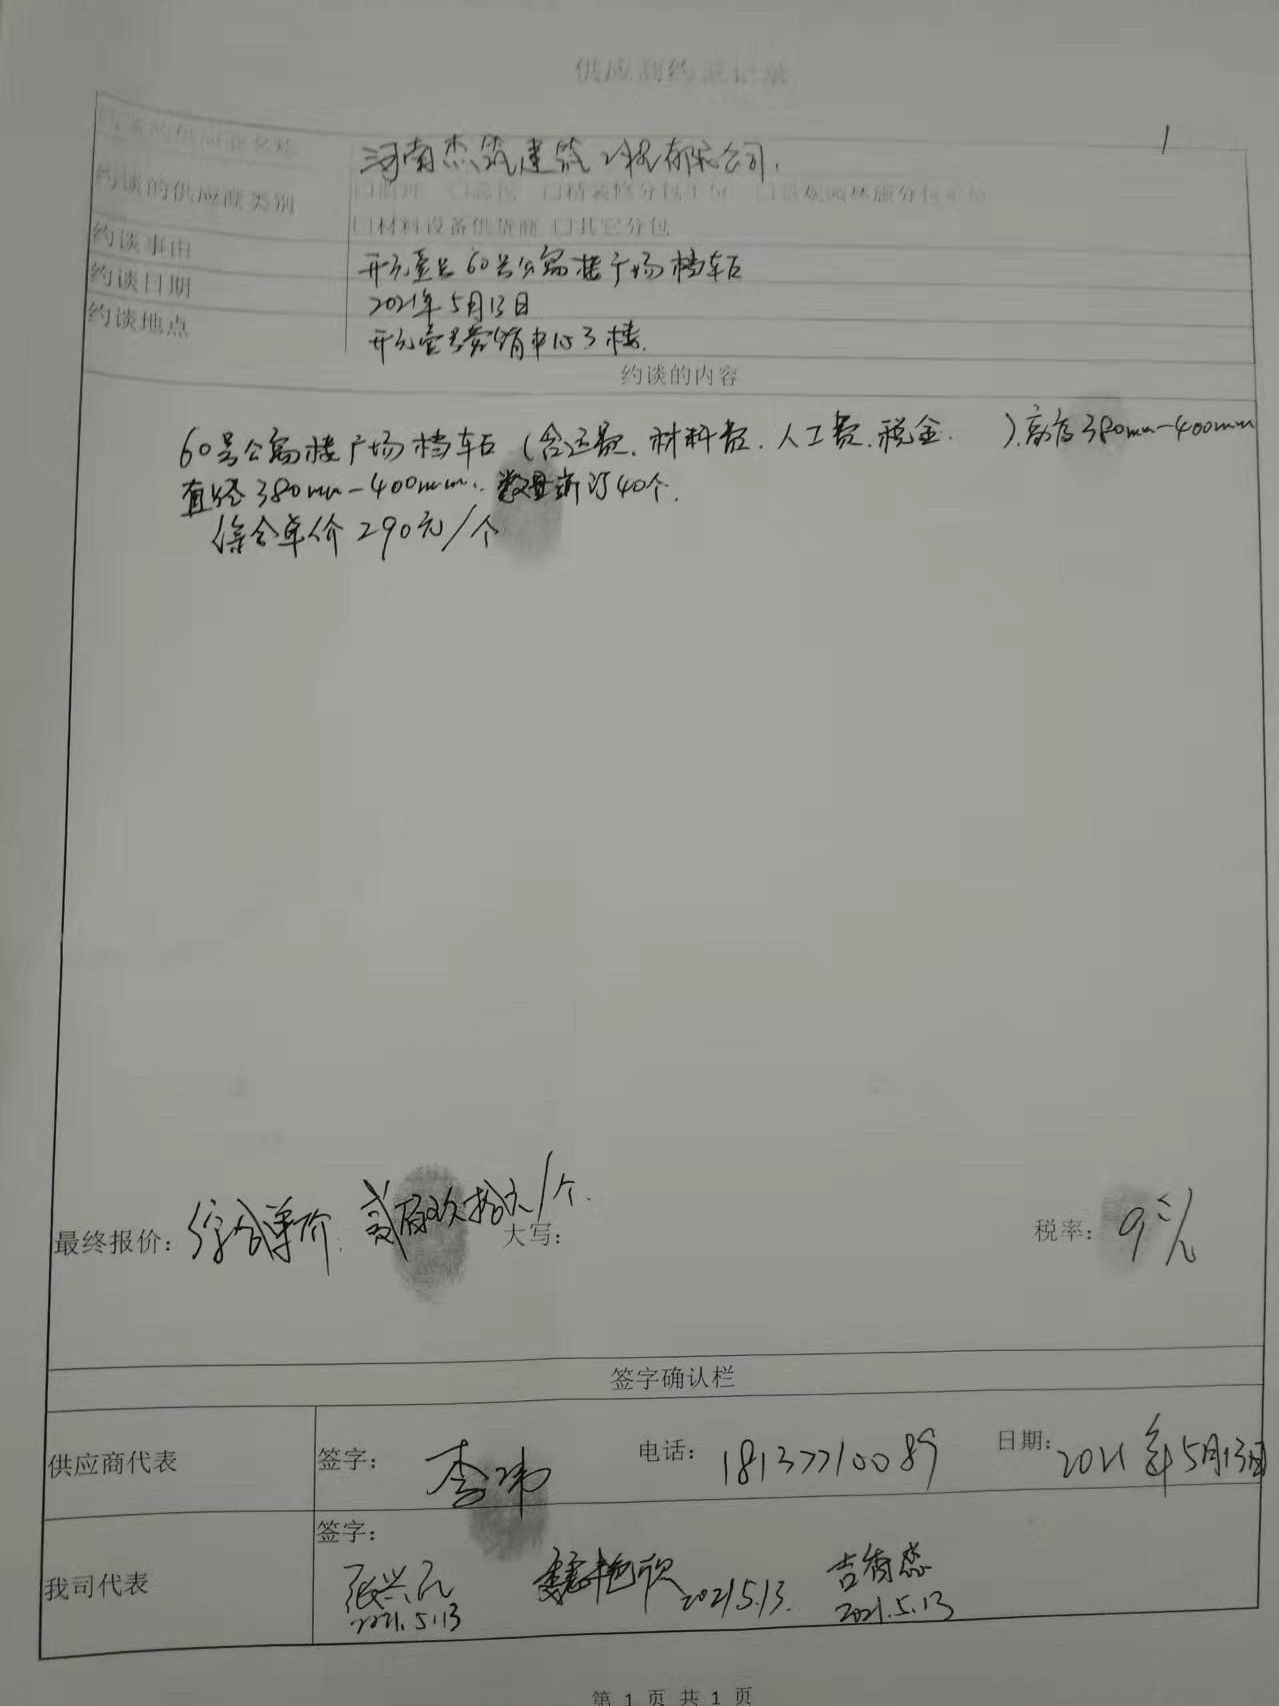 供应商约谈记录
1
约谈的供应商名称 河南杰筑建筑工程有限公司.
约谈的供应商类别 □监理 □总包 □精装修分包单位 □景观园林施分包单位
□材料设备供货商 □其它分包
约谈事由 开元壹号60号公寓楼广场档车石
约谈日期 2021年5月13日
约谈地点 开元壹号营销中心3楼.
约谈的内容
60号公寓楼广场档车石(含运费.材料费.人工费.税金. ).高度380mm-400mm
直径380mm-400mm. 数量暂订40个.
综合单价290元/个
最终报价: 综合单价: 贰佰玖拾元/个. 大写: 税率: 9%
签字确认栏
供应商代表 签字: 李玮 电话: 18137710089 日期: 2021年5月13日
我司代表 签字:
张兴元 2021.5.13 2021.5.13. 吉倩蕊 2021.5.13
第 1 页 共 1 页